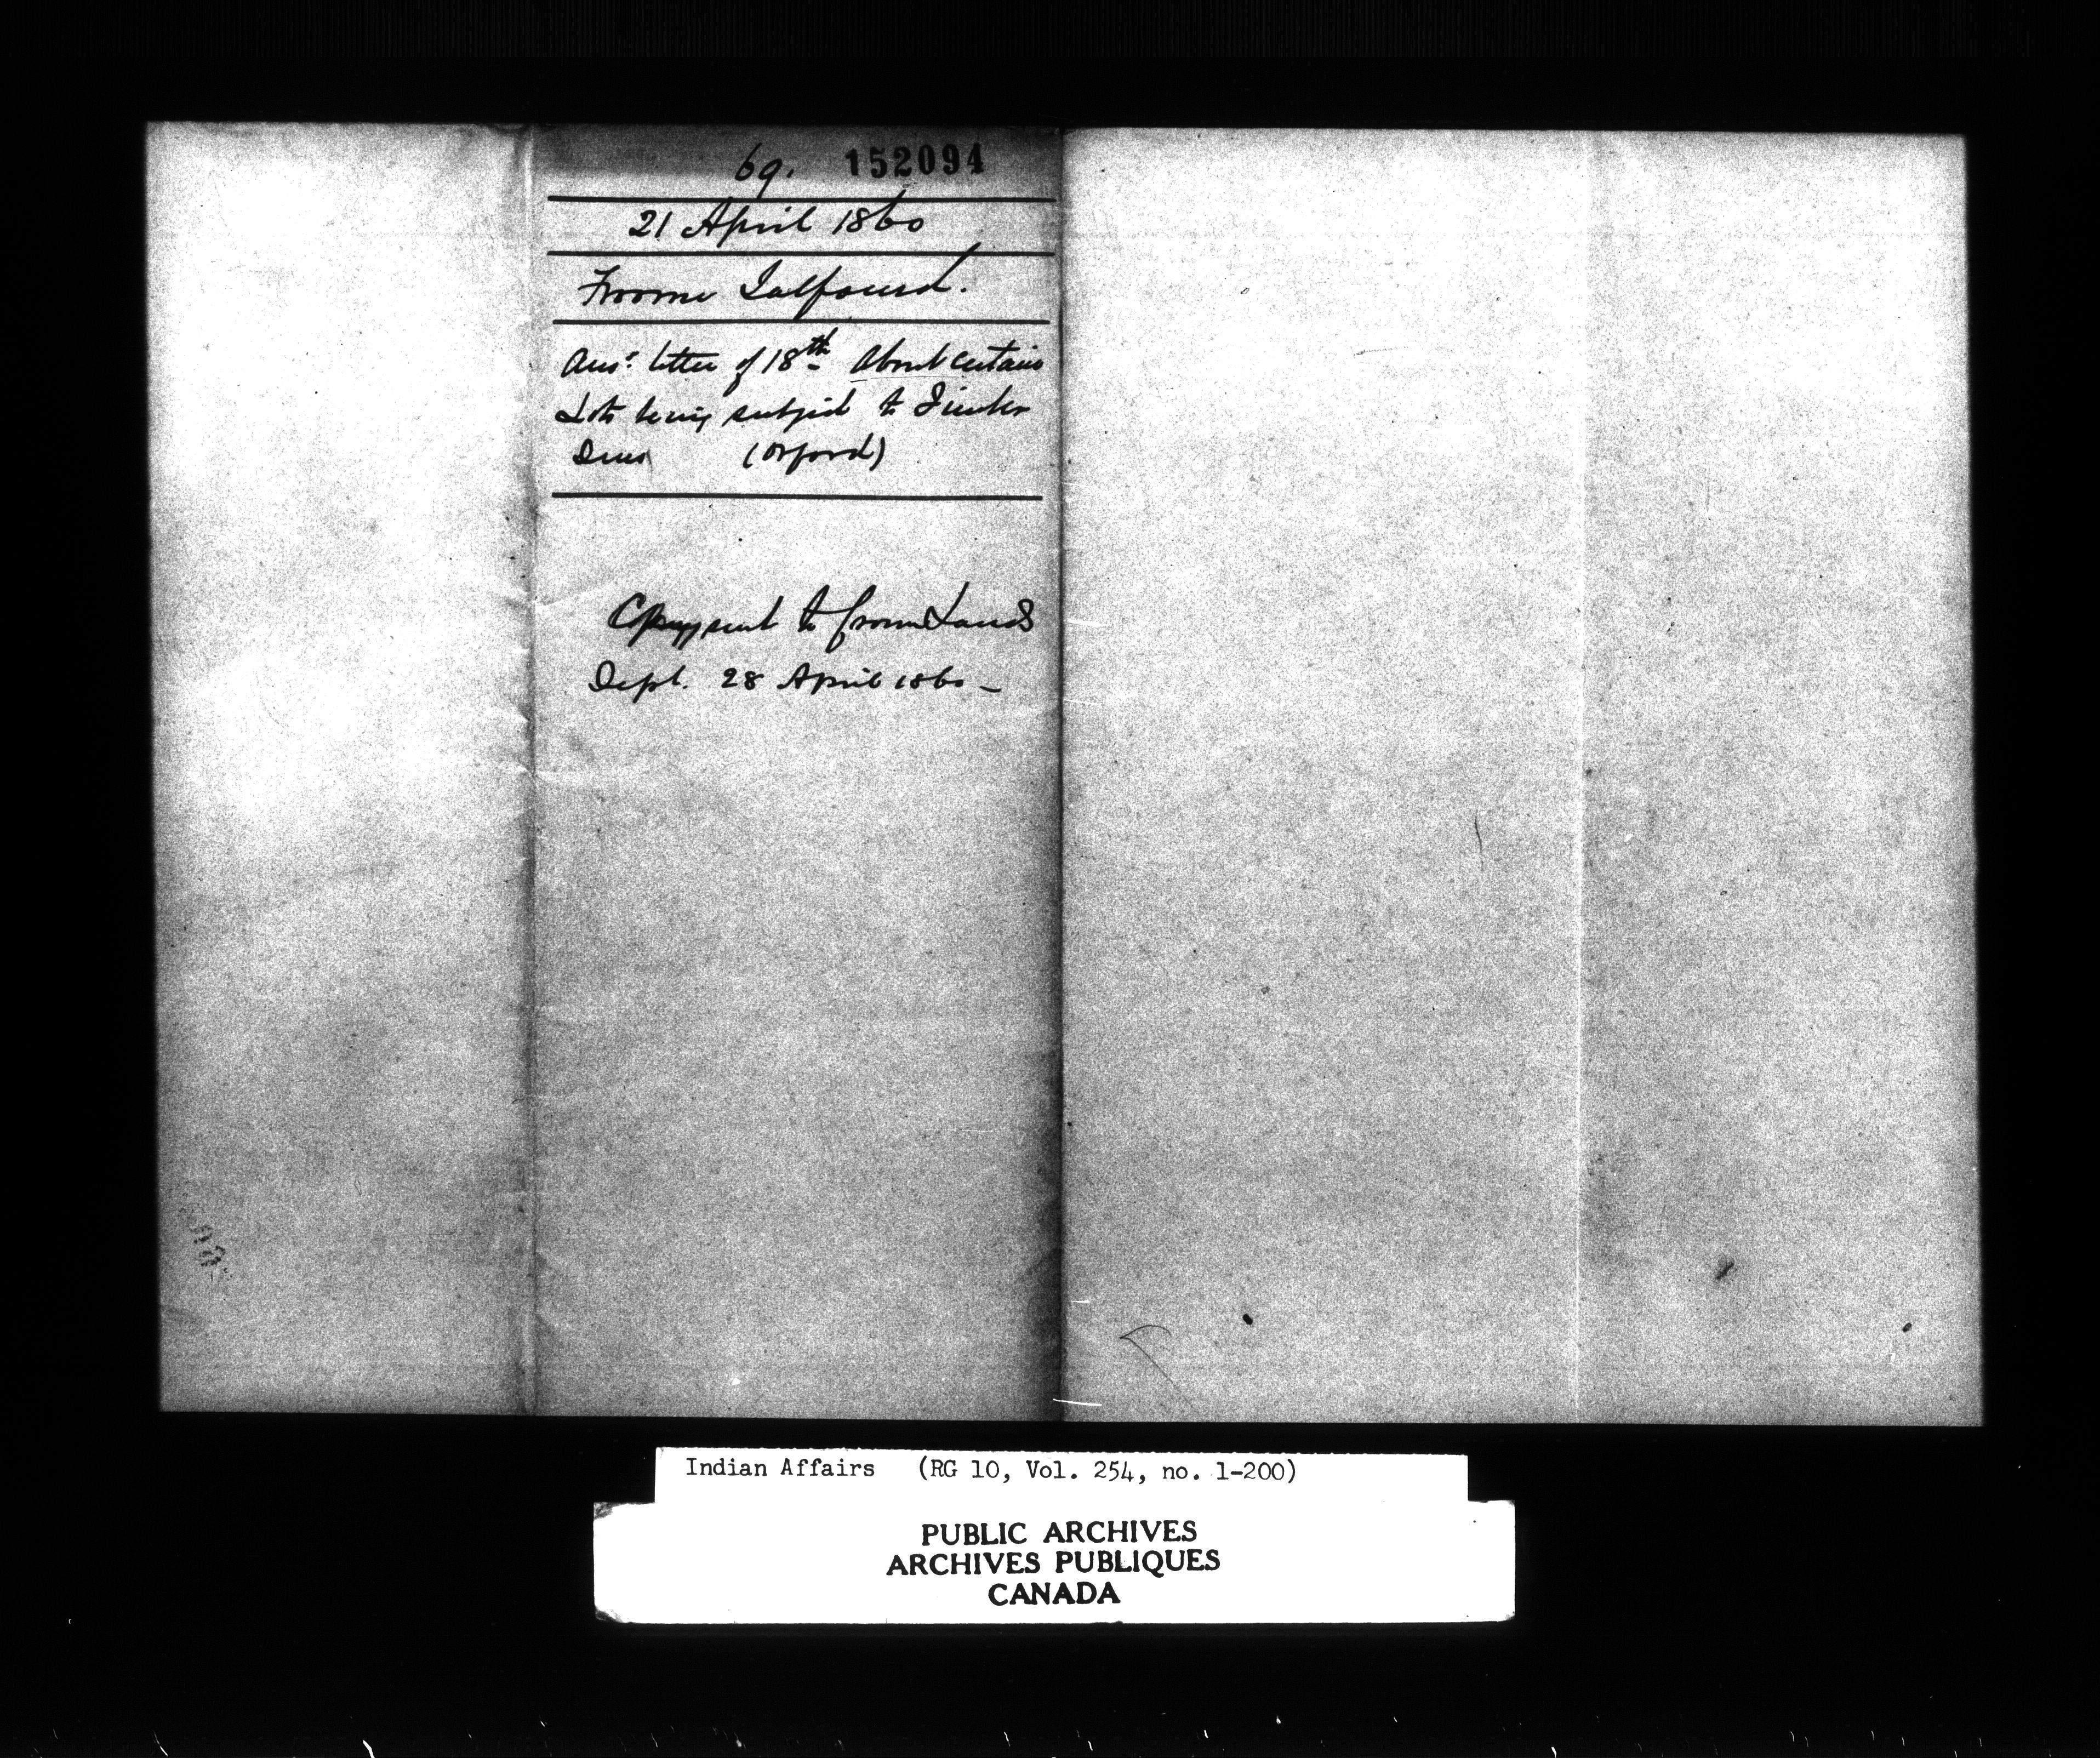 69. 152094
21 April 1860
Froome Talfourd.
Ansr. letter of 18th About certain
Lots being subject to Timber
Dues (Orford)
Copy sent to Crown Lands
Dept. 28 April 1860 -
Indian Affairs (RG 10, Vol. 254, no. 1-200)
PUBLIC ARCHIVES
ARCHIVES PUBLIQUES
CANADA